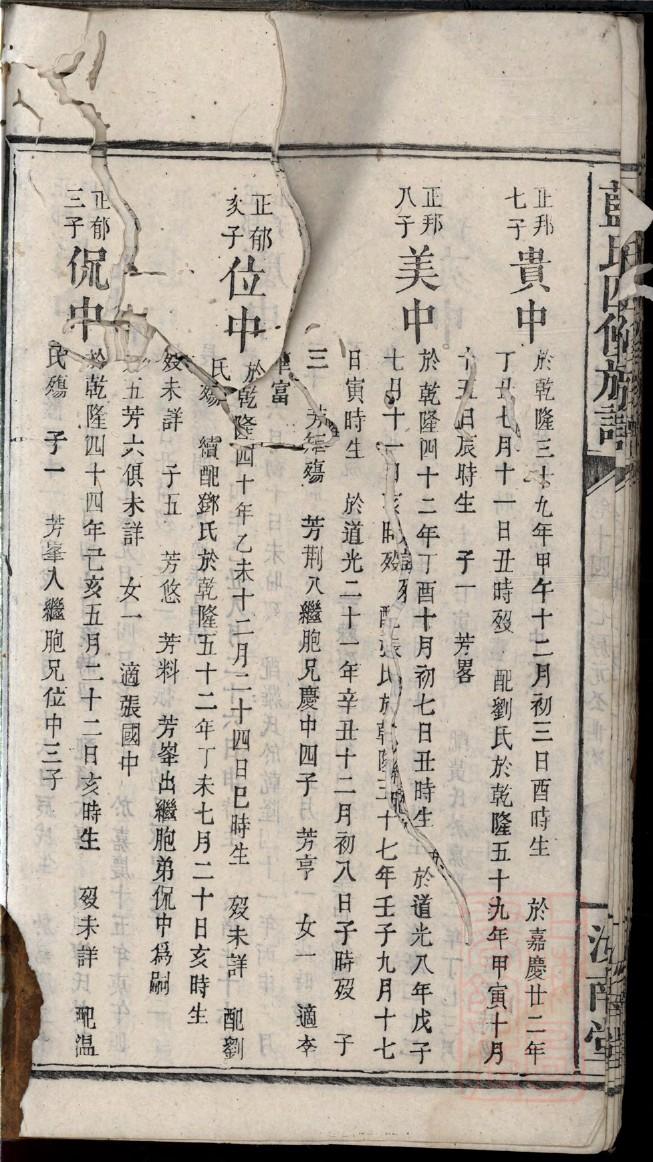 藍氏四修族譜
汝南堂
正邦
七子
貴中
於乾隆三十九年甲午十二月初三日酉時生 於嘉慶廿二年
丁丑七月十一日丑時歿 配劉氏於乾隆五十九年甲寅十月
十五日辰時生 子一 芳畧
正邦
八子
美中
於乾隆四十二年丁酉十月初七日丑時生 於道光八年戊子
七月十一日亥時歿 配張氏於乾隆 三十七年壬子九月十七
日寅時生 於道光二十一年辛丑十二月初八日子時歿 子
三 芳年殤 芳荆入繼胞兄慶中四子 芳亨 女一 適李
富
正郁
次子
位中
於乾隆四十年乙未十二月二十四日巳時生 歿未詳 配劉
氏殤 續配鄧氏於乾隆五十二年丁未七月二十日亥時生
歿未詳 子五 芳悠 芳料 芳峯出繼胞弟侃中爲嗣
五芳六俱未詳 女一 適張國中
正郁
三子
侃中
於乾隆四十四年己亥五月二十二日亥時生 歿未詳 配温
氏殤 子一 芳峯入繼胞兄位中三子